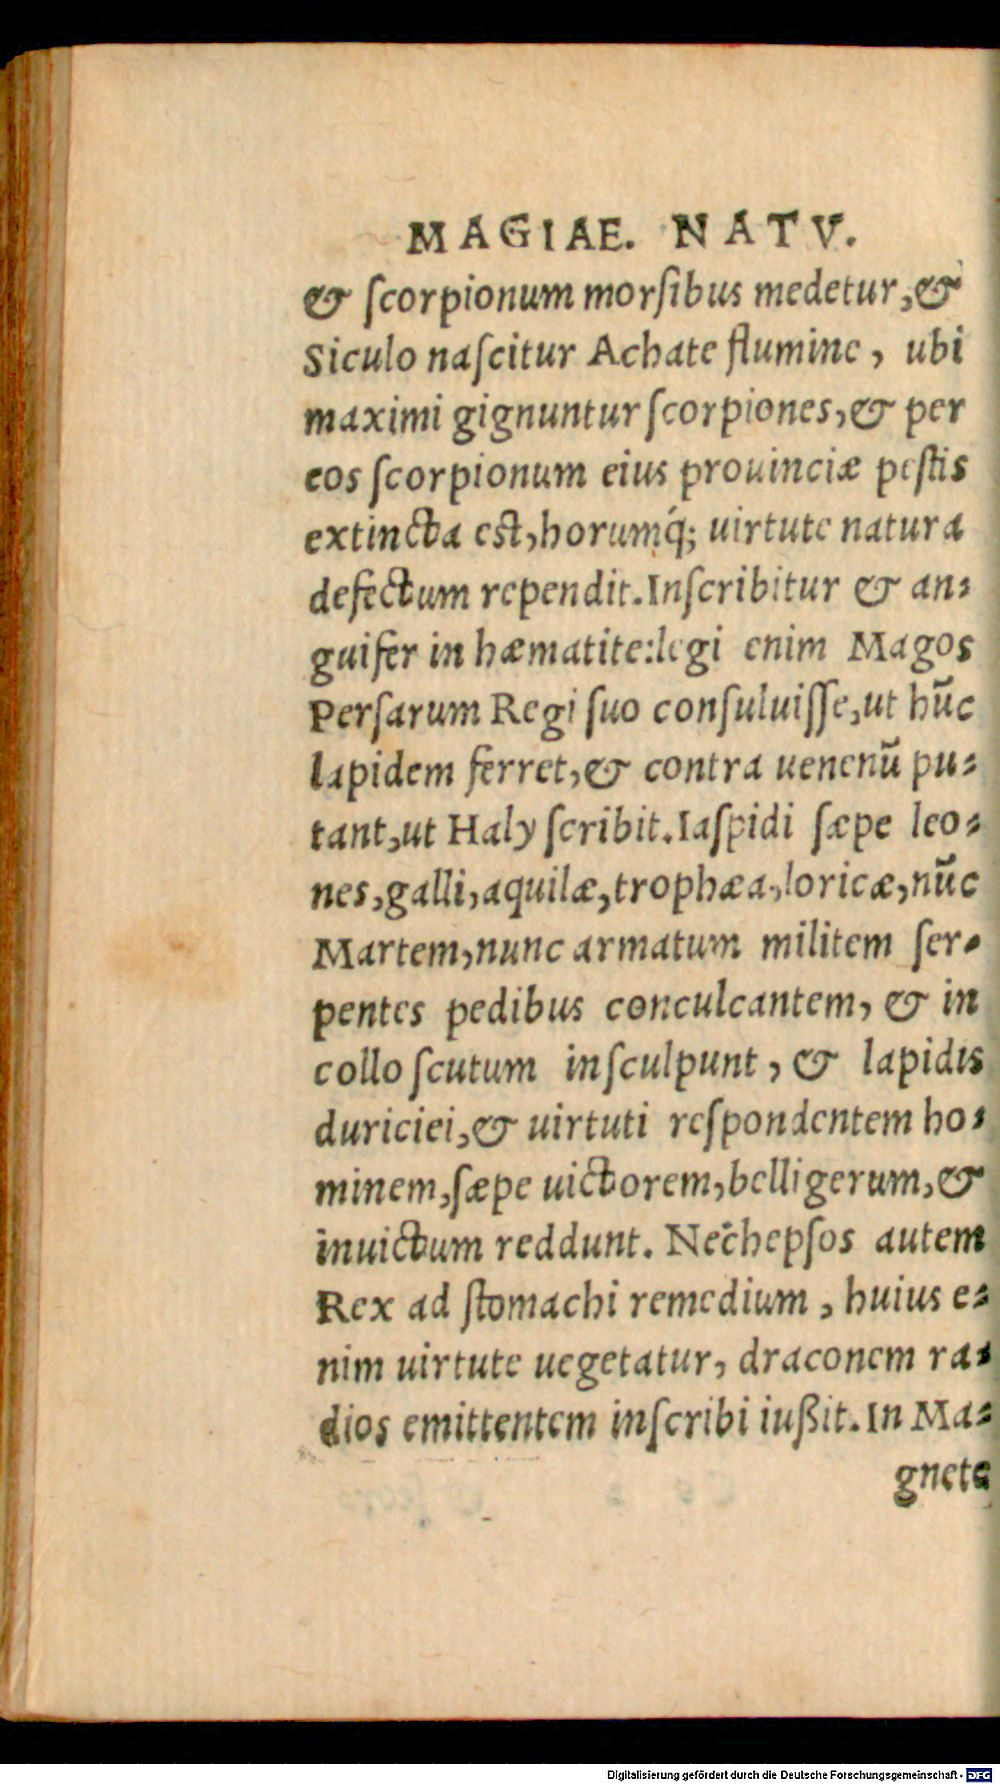 MAGIAE. NATV.
& ſcorpionum morſibus medetur,&
Siculo naſcitur Achate flumine, ubi
maximi gignuntur ſcorpiones,& per
eos ſcorpionum eius prouinciæ peſtis
extincta eſt,horumq́; uirtute natura
defectum rependit.Inſcribitur & an⸗
guifer in hæmatite:legi enim Magos
Perſarum Regi ſuo conſuluiſſe,ut hūc
lapidem ferret,& contra uenenū pu⸗
tant,ut Haly ſcribit.Iaſpidi ſæpe leo⸗
nes,galli,aquilæ,trophæa,loricæ,nūc
Martem,nunc armatum militem ſer⸗
pentes pedibus conculcantem, & in
collo ſcutum inſculpunt, & lapidis
duriciei,& uirtuti reſpondentem ho⸗
minem,ſæpe uictorem,belligerum,&
inuictum reddunt. Nechepſos autem
Rex ad ſtomachi remedium, huius e⸗
nim uirtute uegetatur, draconem ra⸗
dios emittentem inſcribi iußit.In Ma⸗
gnete
Digitalisierung gefördert durch die Deutsche Forschungsgemeinschaft - DFG